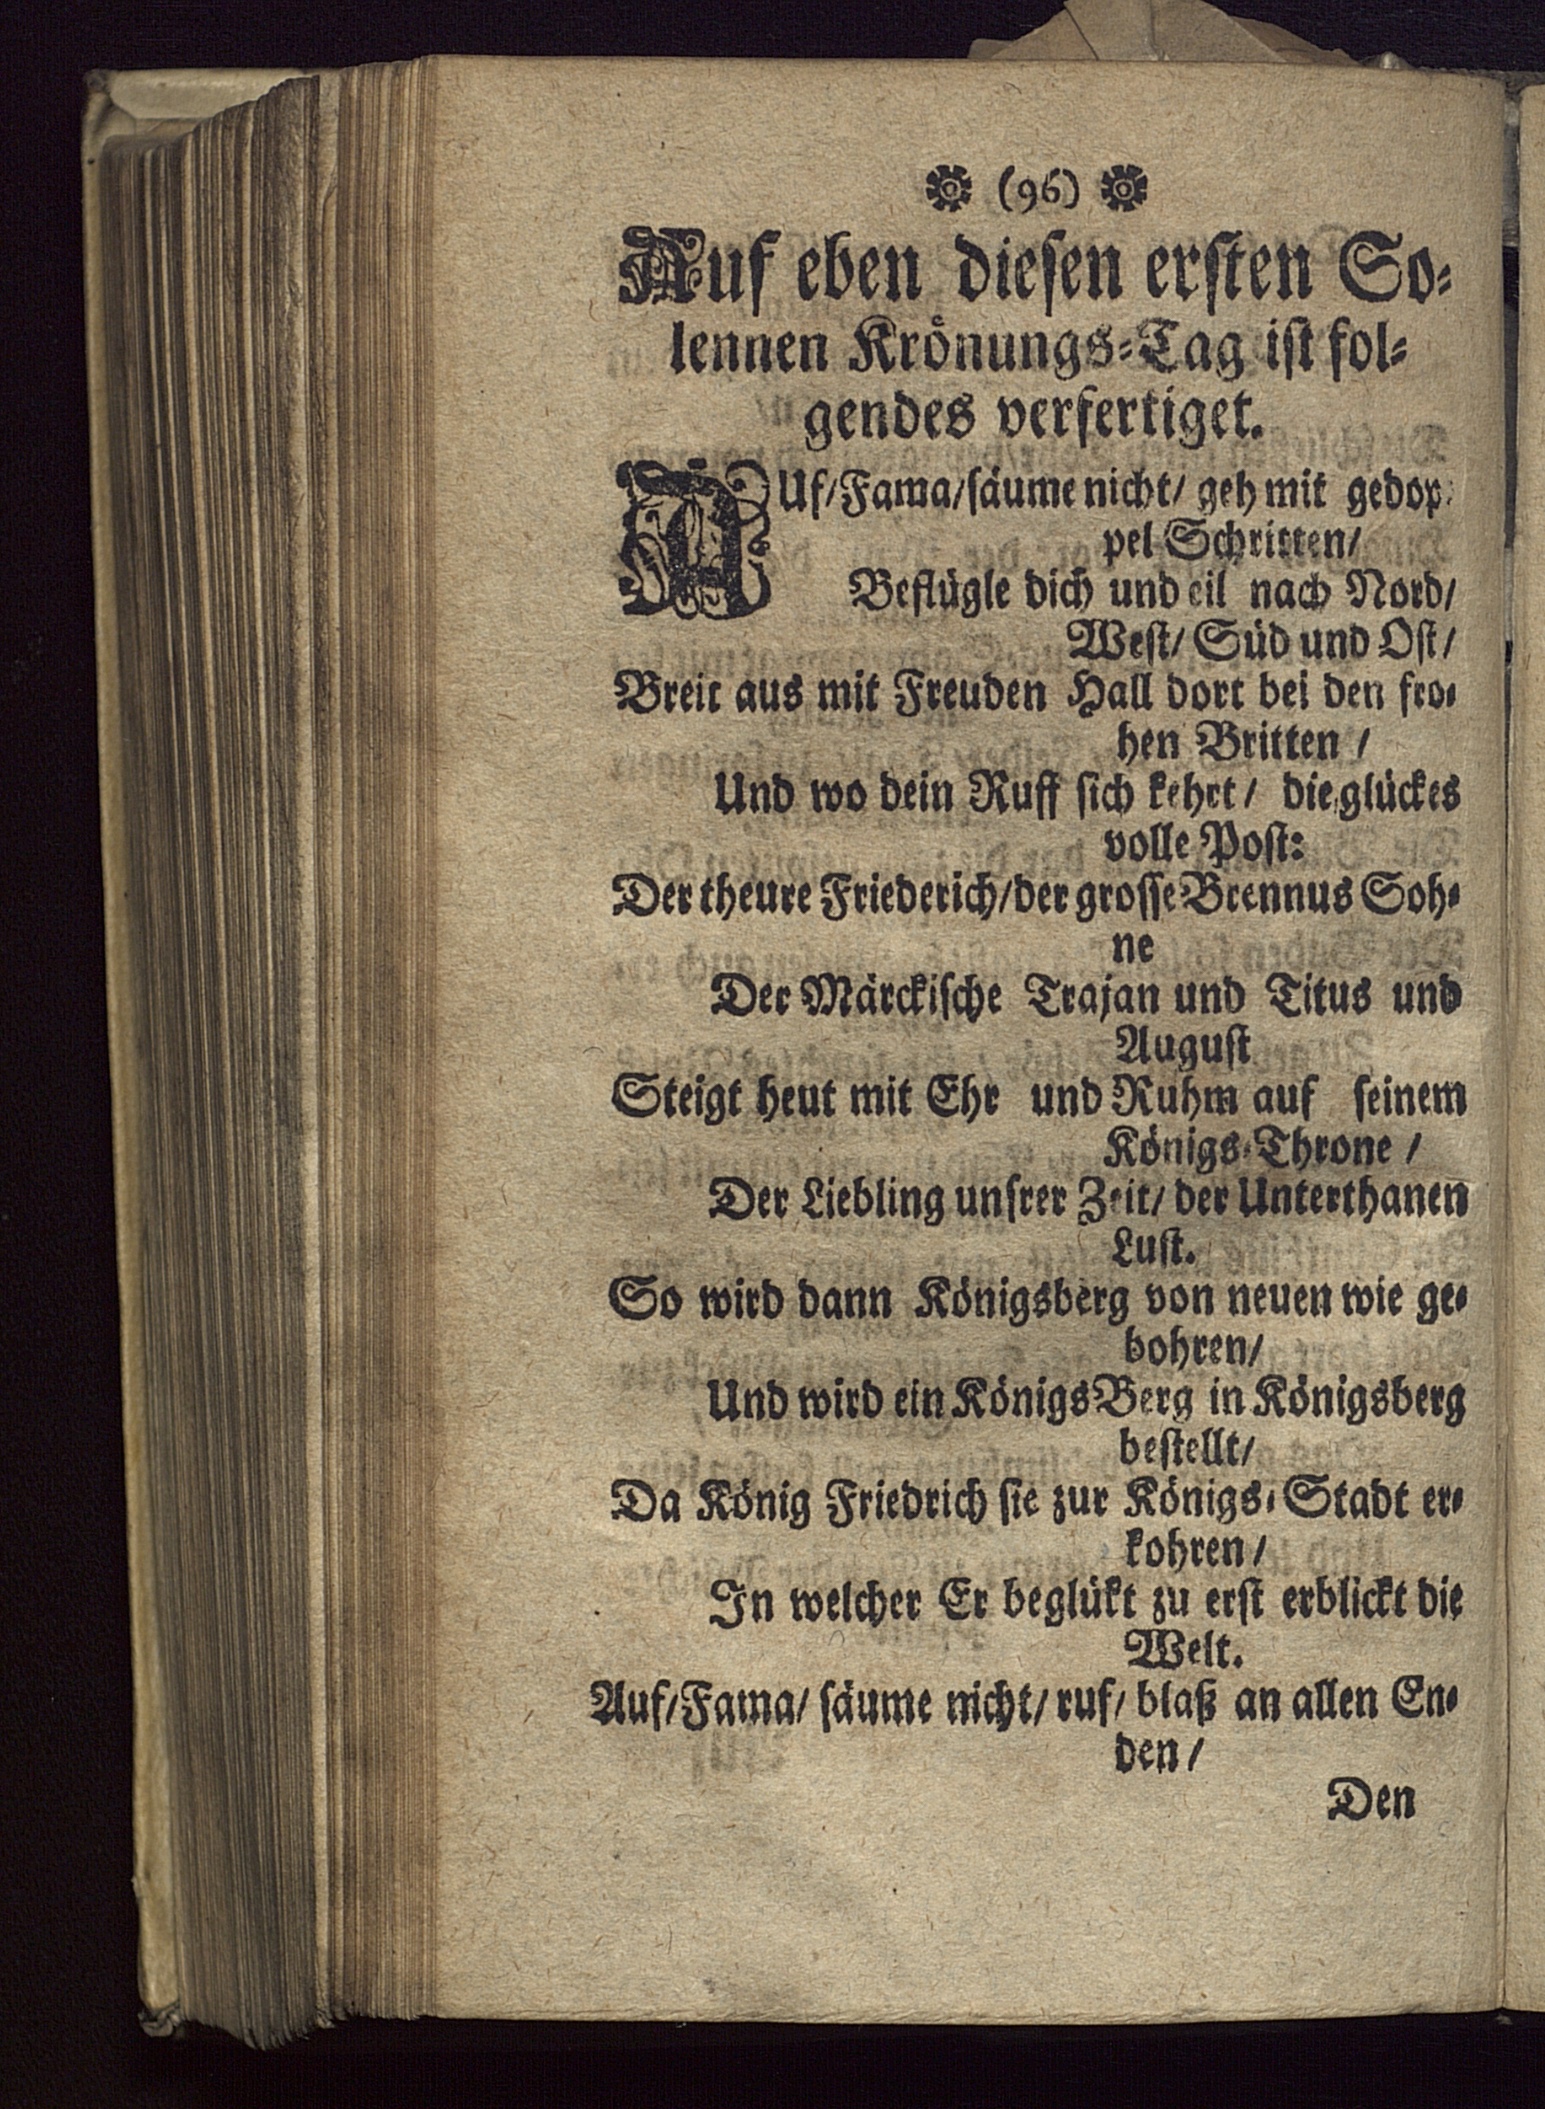 (96)
Auf eben dieſen erſten So⸗
lennen Krönungs⸗Tag iſt fol⸗
gendes verfertiget.
AUf/ Fama/ ſäume nicht/ geh mit gedop⸗
pel Schritten/
Beflügle dich und eil nach Nord/
Weſt/ Süd und Oſt/
Breit aus mit Freuden Hall dort bei den fro⸗
hen Britten /
Und wo dein Ruff ſich kehrt/ die glückes
volle Poſt:
Der theure Friederich/ der groſſe Brennus Soh⸗
ne
Der Märckiſche Trajan und Titus und
Auguſt
Steigt heut mit Ehr und Ruhm auf ſeinem
Königs⸗Throne /
Der Liebling unſrer Zeit/ der Unterthanen
Luſt.
So wird dann Königsberg von neuen wie ge⸗
bohren/
Und wird ein KönigsBerg in Königsberg
beſtellt/
Da König Friedrich ſie zur Königs⸗Stadt er⸗
kohren/
In welcher Er beglükt zu erſt erblickt die
Welt.
Auf/ Fama/ ſäume nicht/ ruf/ blaß an allen En⸗
den /
Den